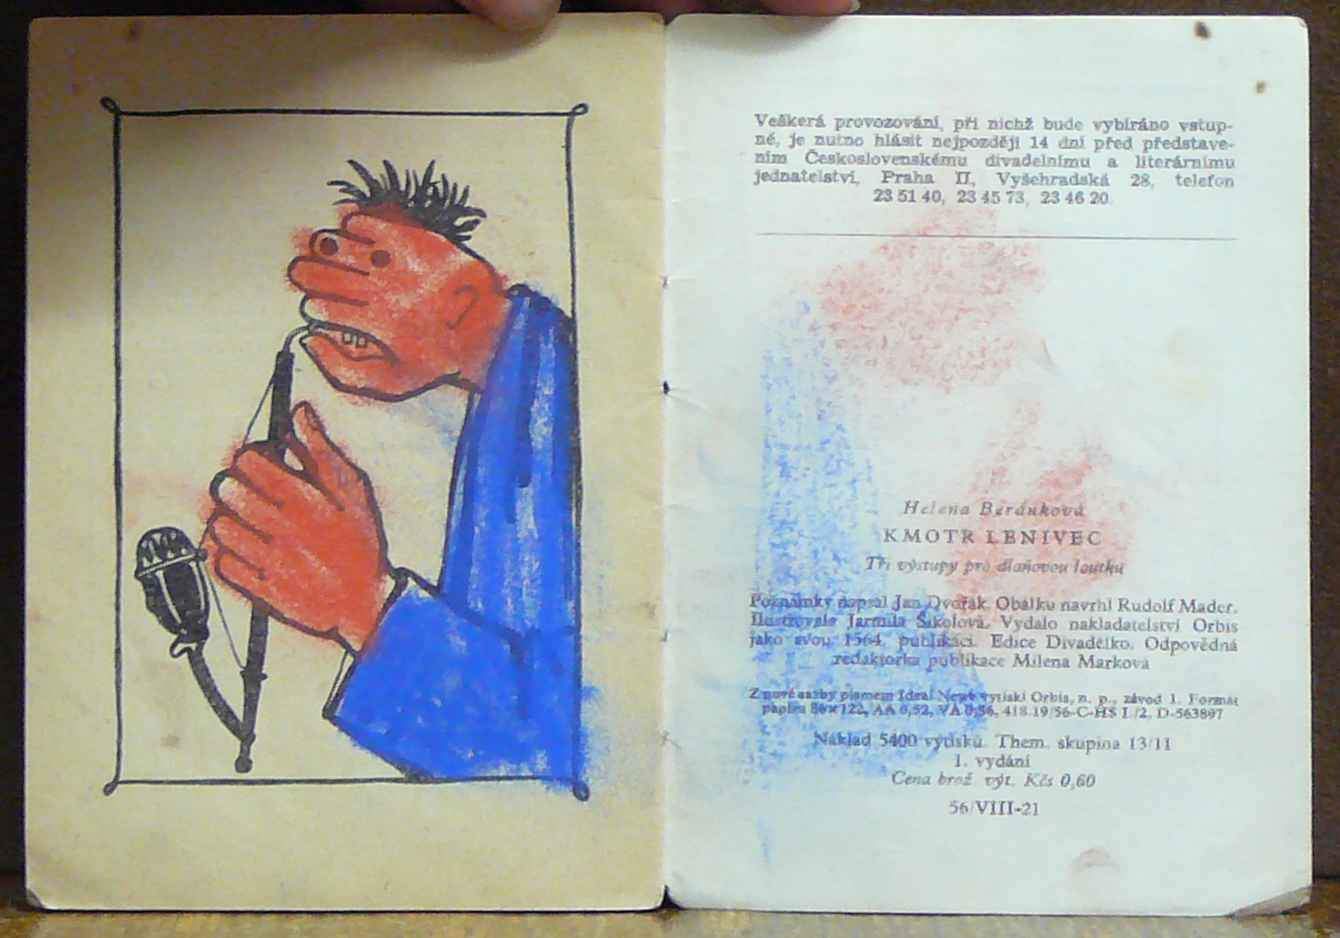 Veškerá provozování, při nichž bude vybíráno vstup-
né, je nutno hlásit nejpozději 14 dní před představe-
ním Československému divadelnímu a literárnímu
jednatelství, Praha II, Vyšehradská 28, telefon
23 51 40, 23 45 73, 23 46 20.
Helena Beránková
KMOTR LENIVEC
Tři výstupy pro dlaňovou loutku
Poznámky napsal Jan Dvořák. Obálku navrhl Rudolf Mader.
Ilustrovala Jarmila Šikolová. Vydalo nakladatelství Orbis
jako svou 1564. publikaci. Edice Divadélko. Odpovědná
redaktorka publikace Milena Marková
Z nové sazby písmem Ideal News vytiskl Orbis, n. p., závod 1. Formát
papíru 86×122, AA 0,52, VA 0,56, 418.19/56-C-HS I/2, D-563897
Náklad 5400 výtisků. Them. skupina 13/11
1. vydání
Cena brož. výt. Kčs 0,60
56/VIII-21